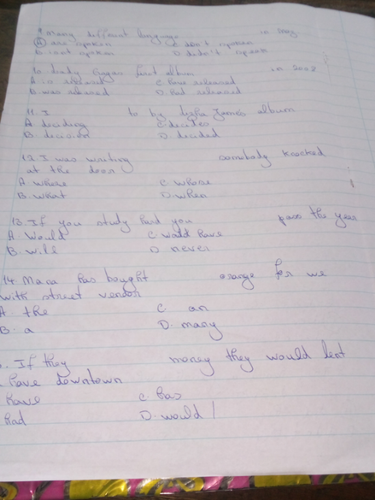 9 many different language in
A are spoken C don't spoken
B. isnot spoken D. didn't speak
10. Lady Gagas first album in 2008
A is released C. have released
B. was released D. Had released
11. I to by album
A deciding C. decides
B. decision D. decided
12. I was writing somebody knocked
at the door
A whose C. whone
B. what D. when
13. If you study hard you pass the year
A Would C. would have
B. will D. never
14. Maca has bought orange for we
with street vendor
A the C. an
B. a D. many
If they money they would
have downtown
have C. has
had D. would